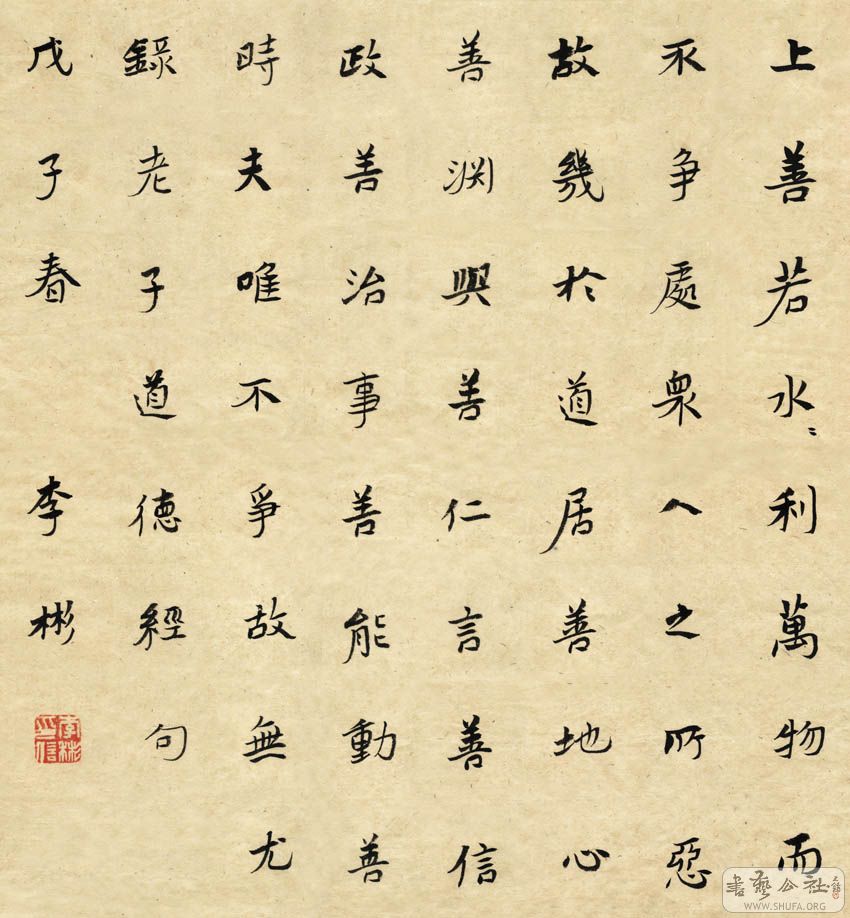 上善若水〻利萬物而
不争處衆人之所惡
故幾於道居善地心
善渊與善仁言善信
政善治事善能動善
時夫唯不爭故無尤
錄老子道德經句
戊子春 李彬
李彬之信
書藝公社
WWW.SHUFA.ORG